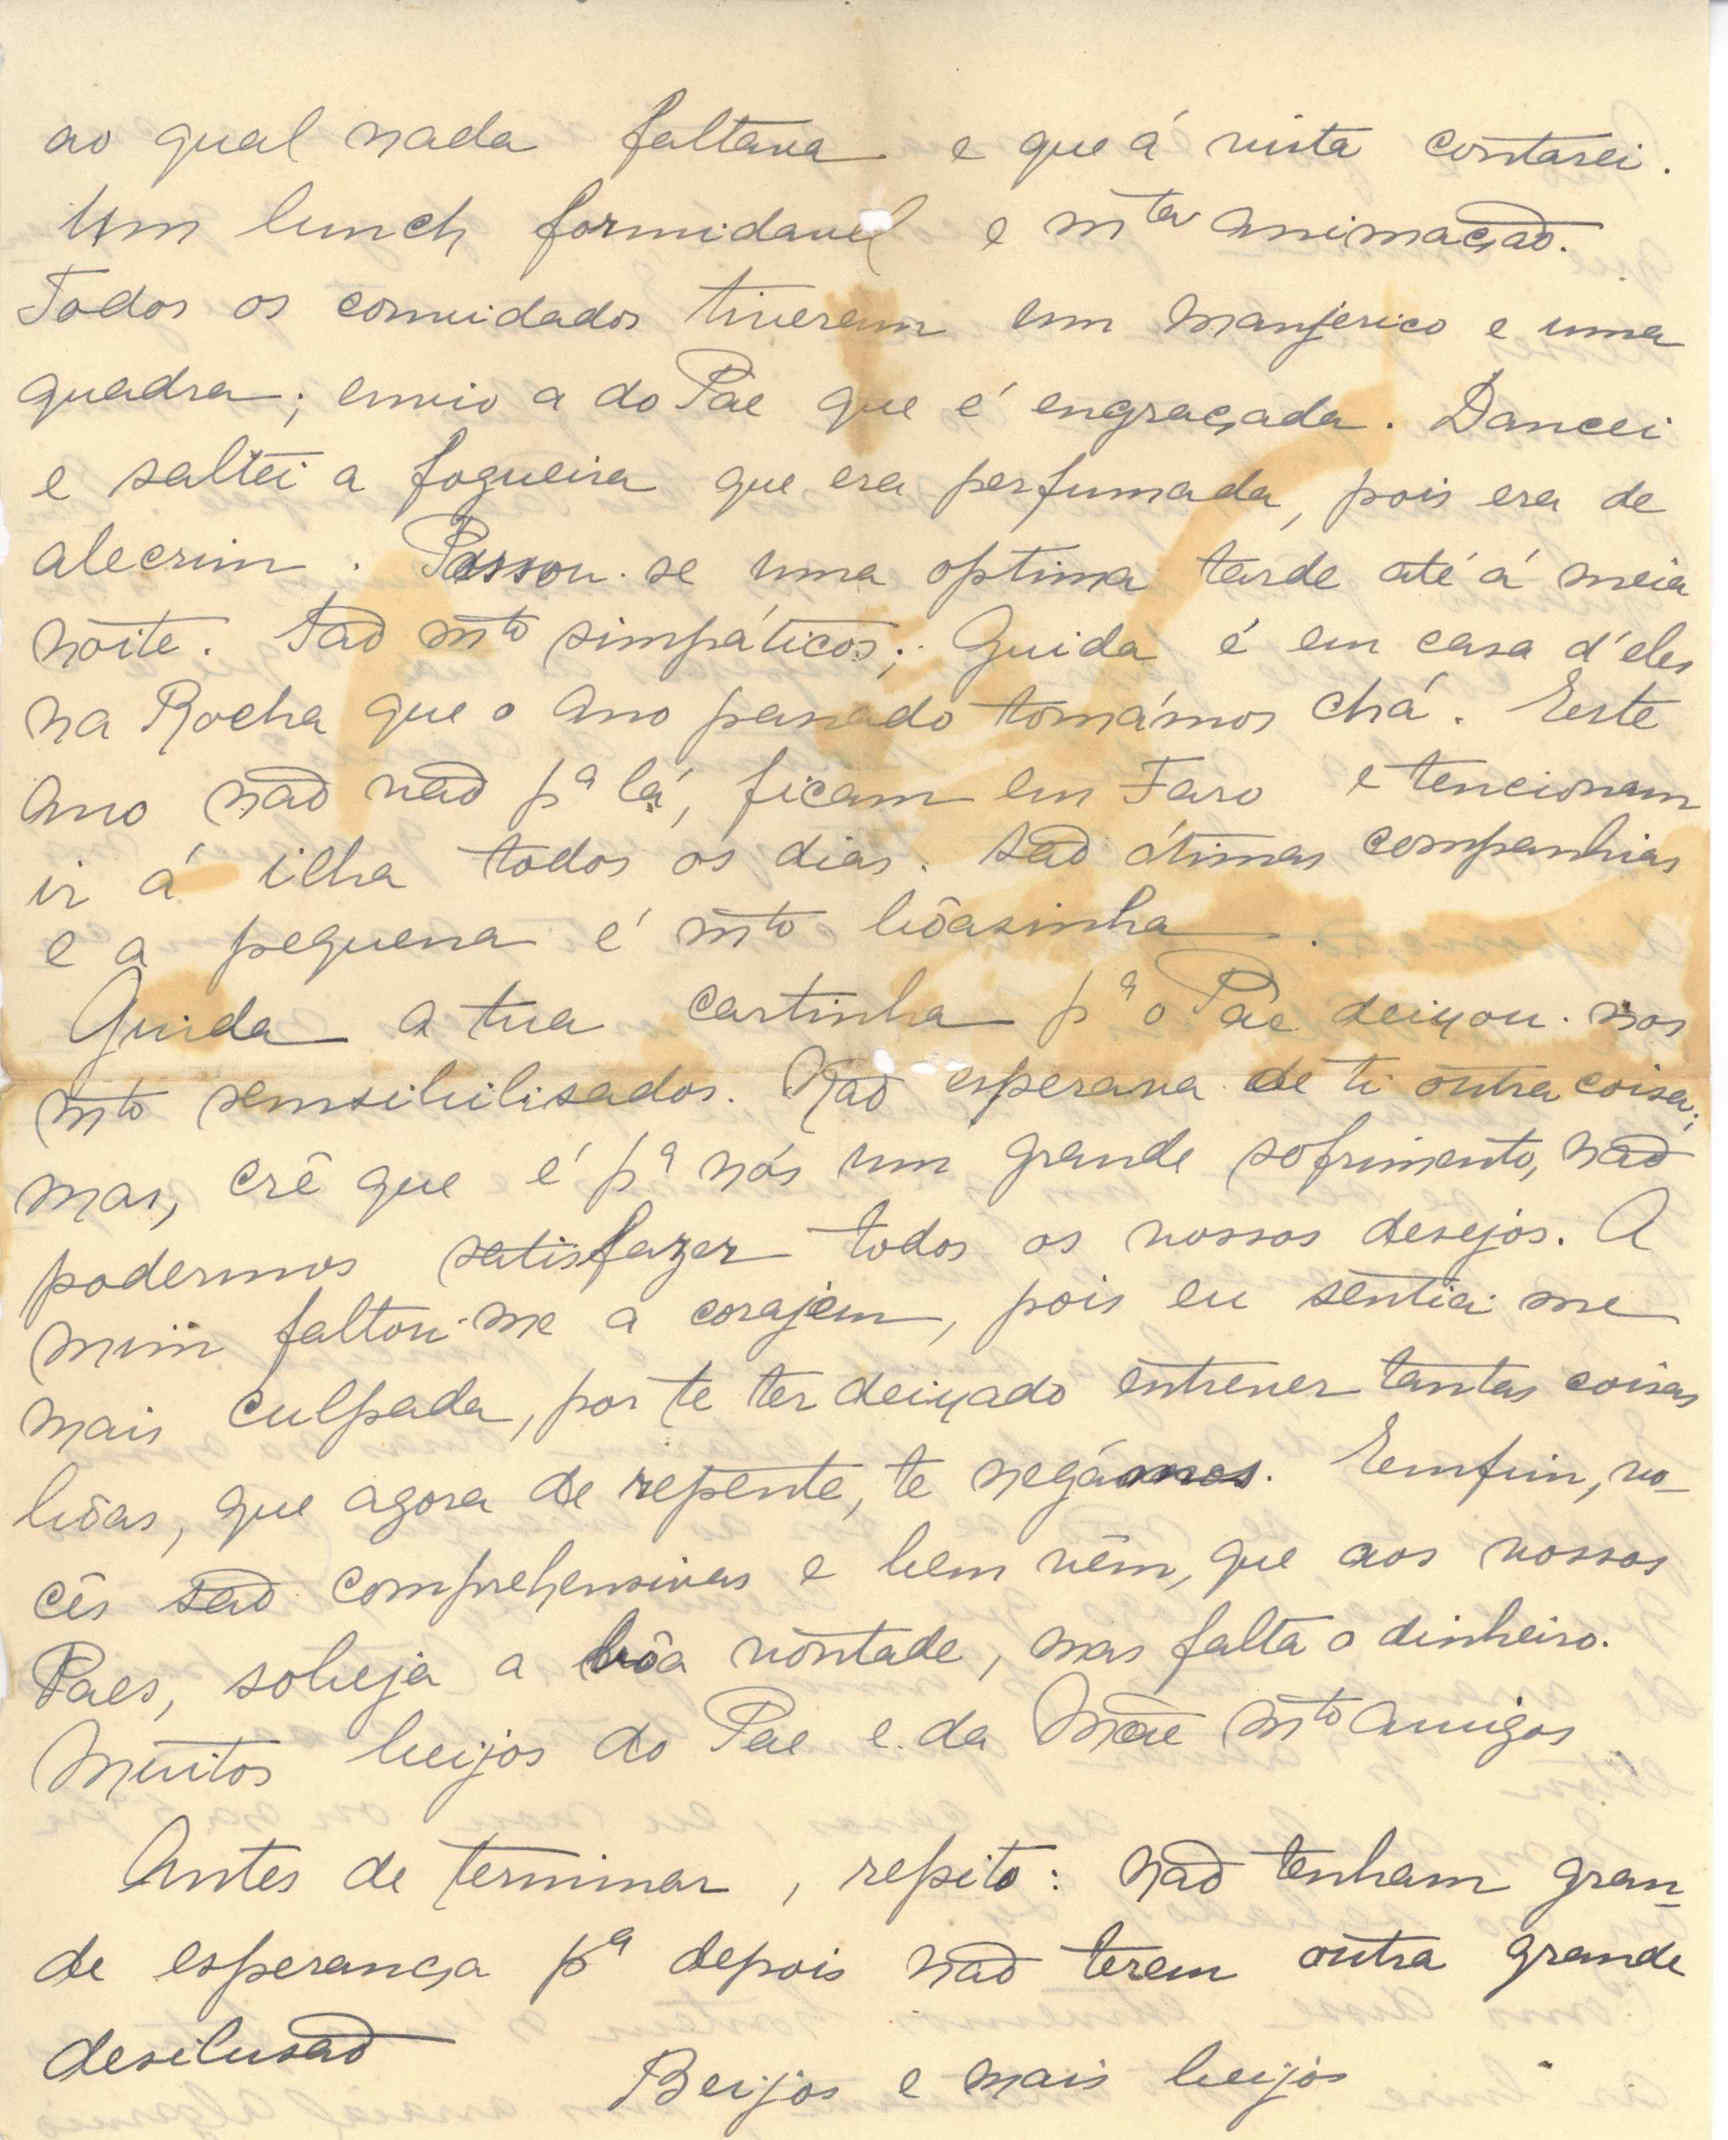 ao qual nada faltava e que á vista contarei.
Um lunch formidavel e mta animação.
Todos os convidados tiveram um manjerico e uma
quadra; envio a do Pae que é engraçada. Dancei
e saltei a fogueira que era perfumada, pois era de
alecrim. Passou-se uma optima tarde até á meia
noite. São mto simpáticos; Guida é em casa d'eles
na Rocha que o ano passado tomámos chá. Este
ano não vão pª lá, ficam em Faro e tencionam
ir á ilha todos os dias. São ótimas companhias
e a pequena é mto bôasinha.
Guida a tua cartinha pª o Pae deixou-nos
mto sensibilisados. Não esperava de ti outra coisa;
mas, crê que é pª nós um grande sofrimento, não
podermos satisfazer todos os vossos desejos. A
mim faltou-me a corajem, pois eu sentia-me
mais culpada, por te ter deixado entrever tantas coisas
bôas, que agora de repente, te negámos. Emfim, vo-
cês são comprehensivas e bem vêm, que aos vossos
Paes, sobeja a bôa vontade, mas falta o dinheiro.
Muitos beijos do Pae e da Mãe mto amigos
Antes de terminar, repito: não tenham gran-
de esperança pª depois não terem outra grande
desilusão
Beijos e mais beijos